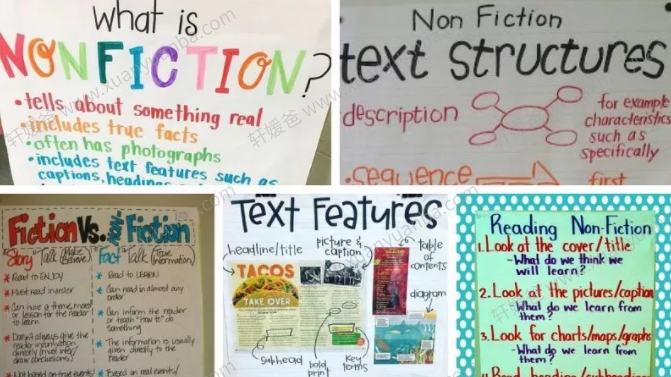 what is
NONFICTION?
• tells about something real
• includes true facts
• often has photographs
• includes text features such as
captions, headings
Non Fiction
text structures
description
for example
characteristics
such as
specifically
• sequence
first
Fiction Vs. Non Fiction
Story Talk (Make Believe)
Fact Talk (True Information)
* Read to ENJOY
* Read to LEARN
* Must read in order
* Can read in almost
any order
* Can have a theme, moral,
or lesson for the reader
to learn
* Can inform the reader
or teach "how to" do
something
* Doesn't always give the
reader information
directly (must infer/
draw conclusions)
* The information is usually
given directly to the
reader
* Not based on true events
* Based on real events/
Text Features
headline/title
picture &
caption
table
of
contents
TACOS
TAKE OVER
diagram
subhead
bold
print
key
terms
Reading Non-Fiction
1. Look at the cover/title
- What do we think we
will learn?
2. Look at the pictures/caption
What do we learn from
them?
3. Look for charts/maps/graphs
- What do we learn from
them?
4. Read heading/subheading
轩媛爸 www.xuanyuanba.com